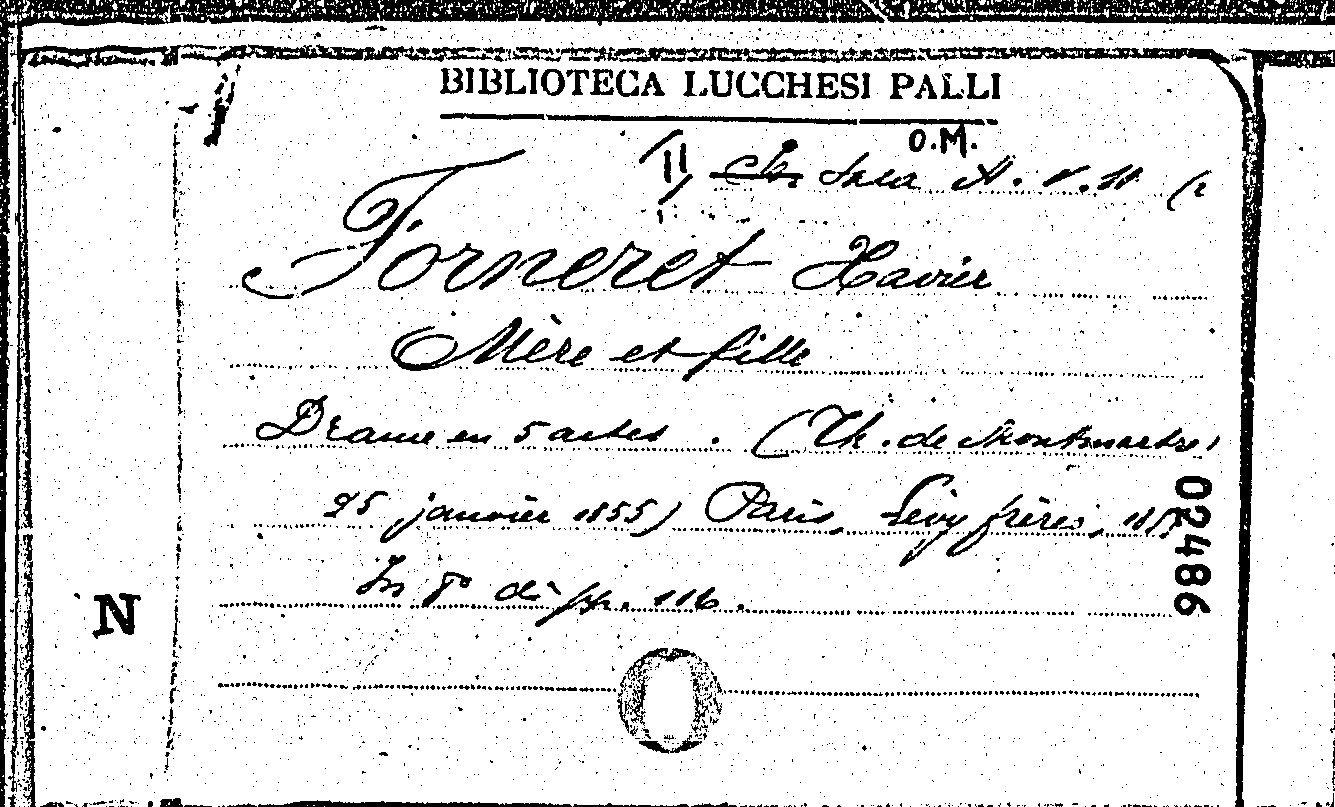 BIBLIOTECA LUCCHESI PALLI
O.M.
Sala A. V. 11 (2
Forneret Xavier
Mère et fille
Drame en 5 actes. (Th. de Montmartre,
25 janvier 1855) Paris, Lévy frères,
In 8° di pp. 116.
N
02486